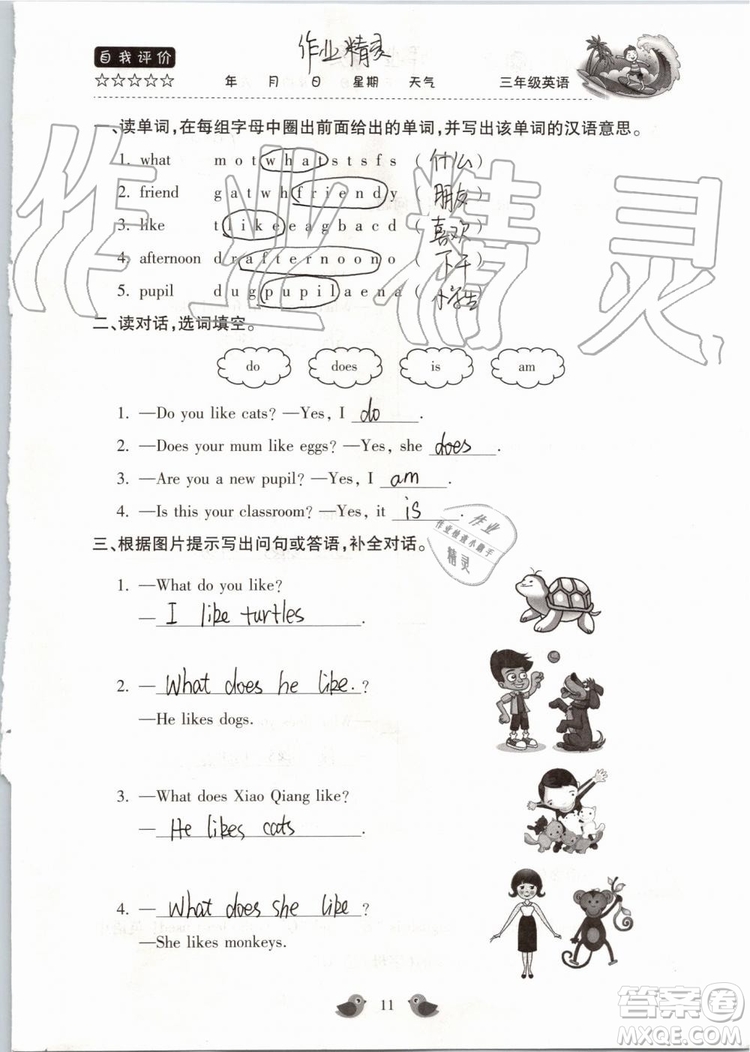 自我评价
作业精灵
☆☆☆☆☆ 年 月 日 星期 天气 三年级英语
一、读单词,在每组字母中圈出前面给出的单词,并写出该单词的汉语意思。
1. what m o t w h a t s t s f s (什么)
2. friend g a t w h f r i e n d y (朋友)
3. like t l i k e e a g b a c d (喜欢)
4. afternoon d r a f t e r n o o n o (下午)
5. pupil d u g p u p i l a e n a (小学生)
二、读对话,选词填空。
do does is am
1. —Do you like cats? —Yes, I do.
2. —Does your mum like eggs? —Yes, she does.
3. —Are you a new pupil? —Yes, I am.
4. —Is this your classroom? —Yes, it is.
三、根据图片提示写出问句或答语,补全对话。
1. —What do you like?
— I like turtles.
2. — What does he like.?
—He likes dogs.
3. —What does Xiao Qiang like?
— He likes cats.
4. — What does she like?
—She likes monkeys.
11
作业精灵
作业
作业检查小助手
精灵
答案圈
MXQE.COM